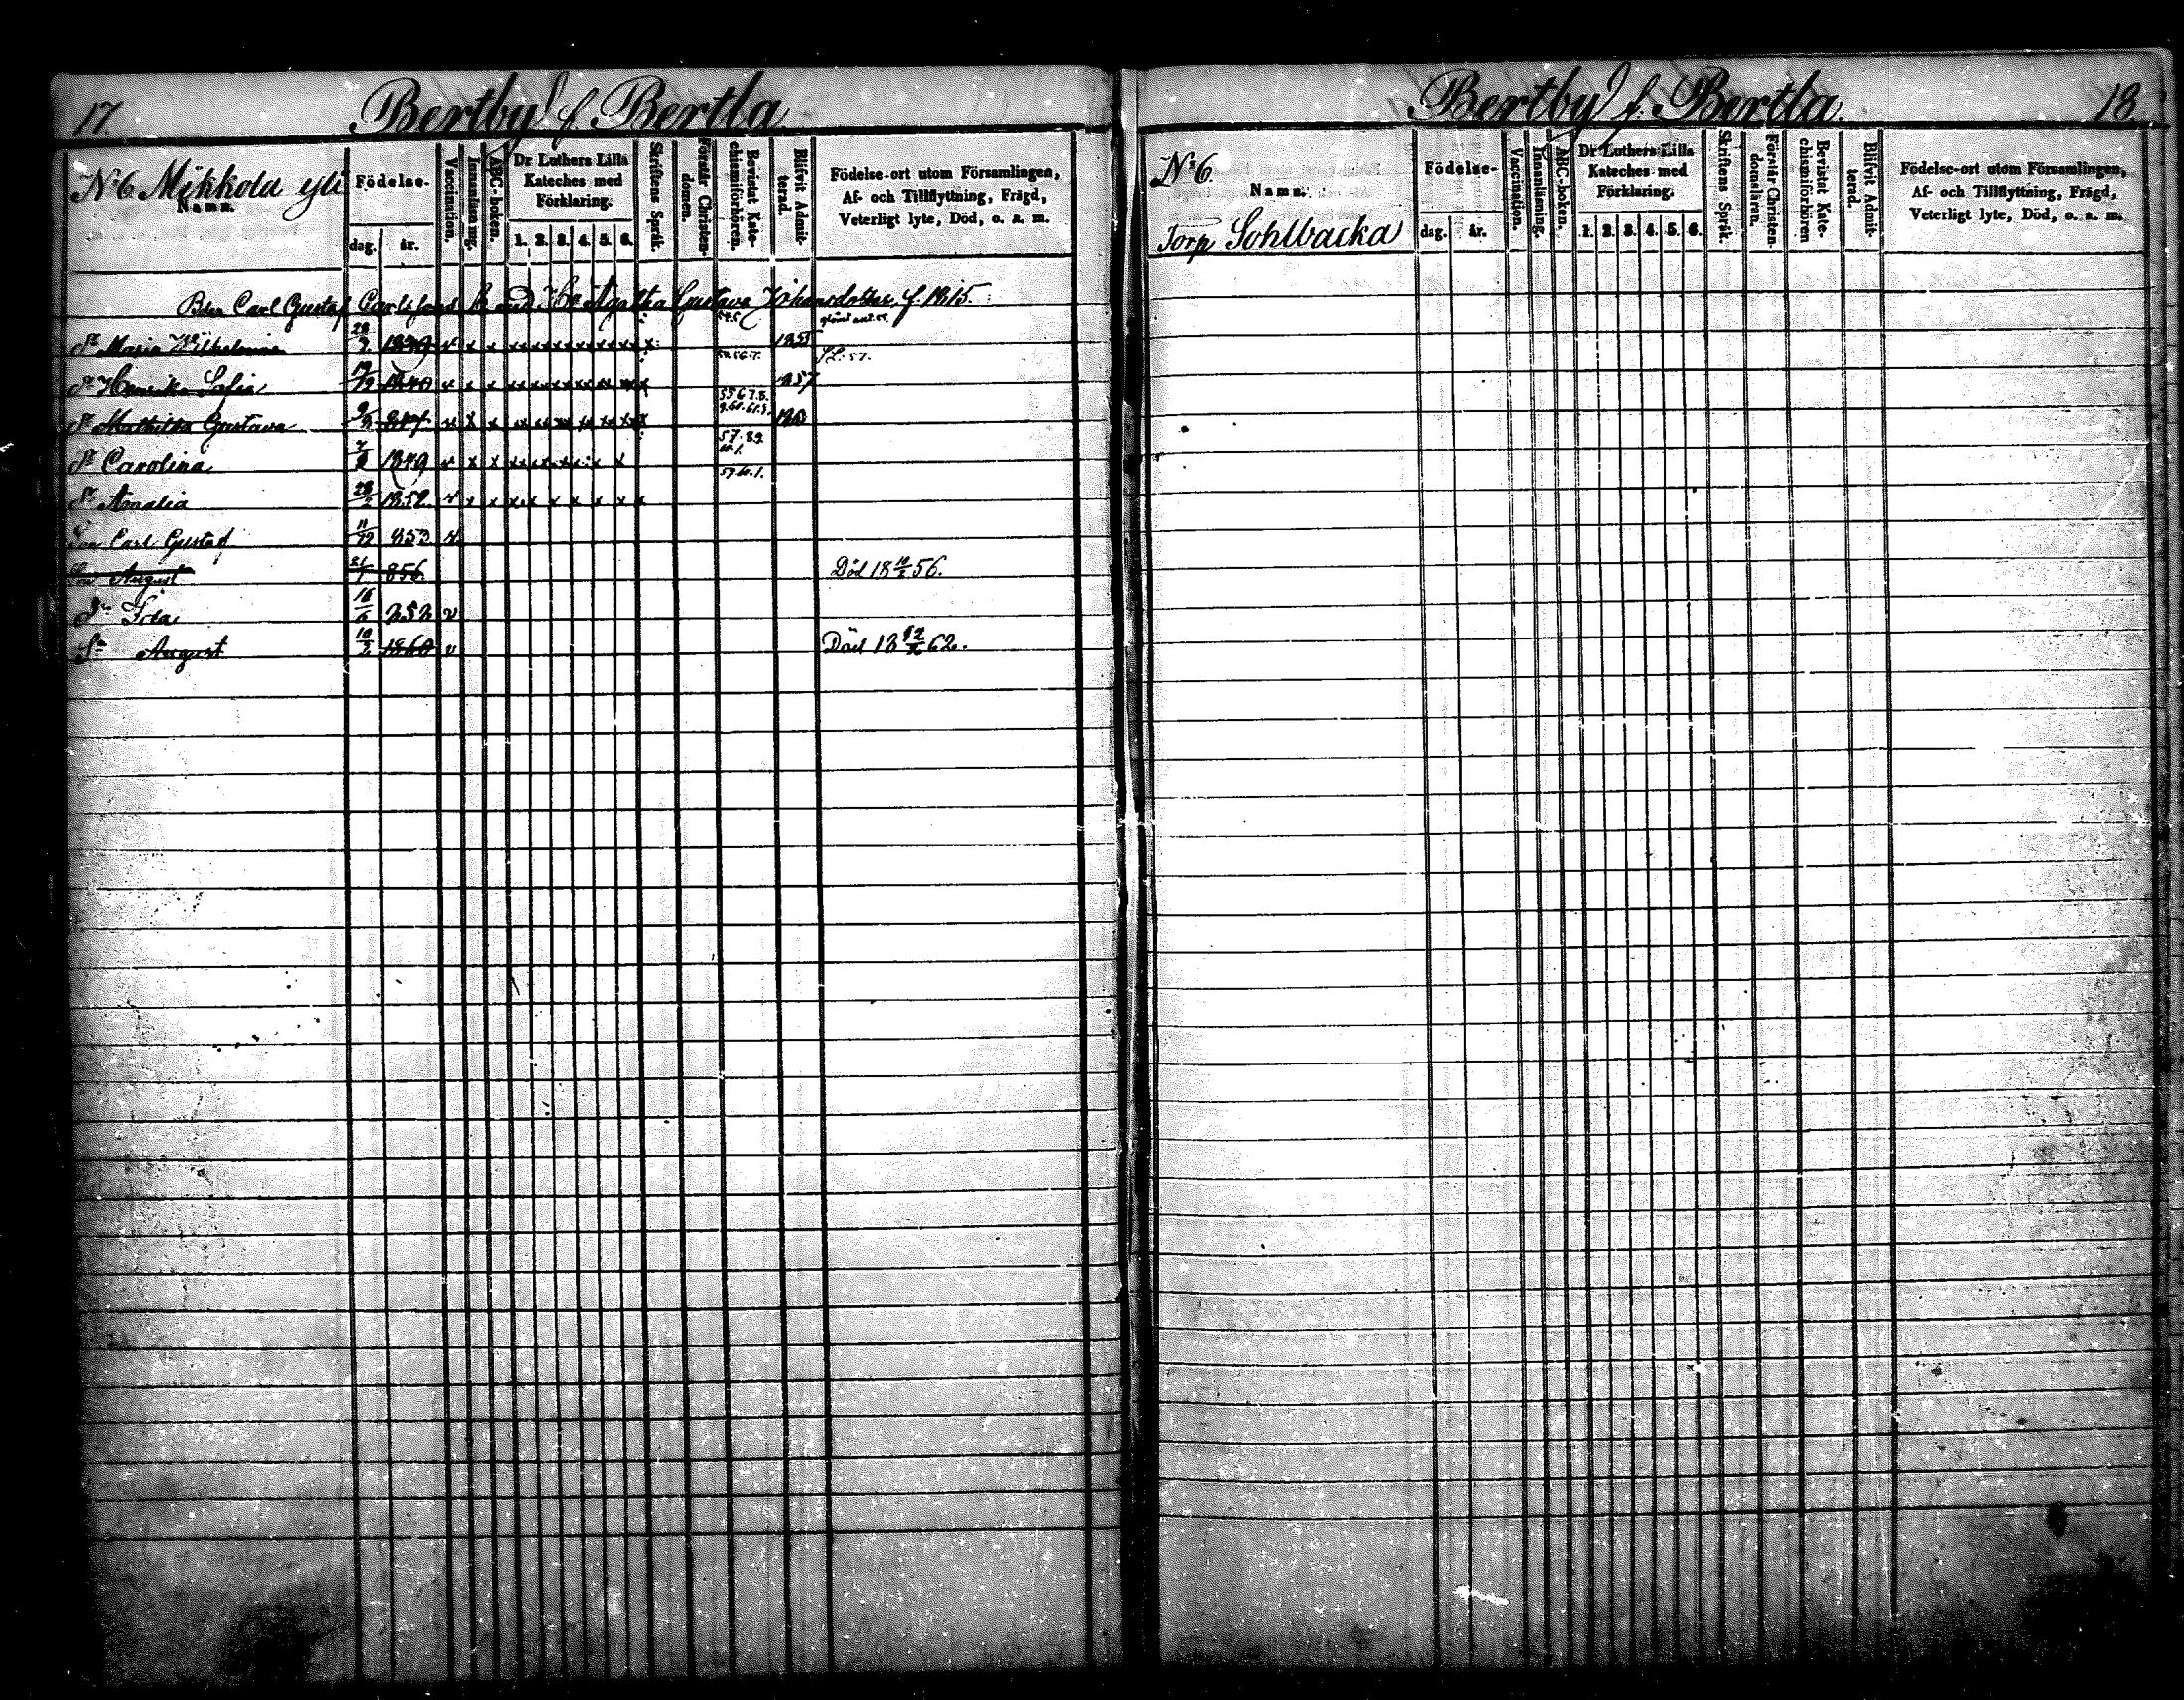 17. Bertby f. Bertla
N:6 Mikkola yli
Namn.
Födelse-
dag. år.
Vaccination.
Innanläsning.
ABC-boken.
Dr Luthers Lilla Kateches med Förklaring.
1. 2. 3. 4. 5. 6.
Skriftens Språk.
Förstår Christendomen.
Bevistat Katechismiförhören.
Blifvit Admitterad.
Födelse-ort utom Församlingen,
Af- och Tillflyttning, Frägd,
Veterligt lyte, Död, o. a. m.
Carl Gustaf Agatha Gustava Johansdotter f. 1815.
Dr Maria Wilhelmina 1839 v x x 1855
Dr Henrika Sofia 1840 v x x 1857
Dr Mathilda Gustava 9/ 847 v x x
Dr Carolina 1849 v x x x x x x x x
Dr Amalia 28/2 1852 v x x x x x x x x x
Son Carl Gustaf 11/12 853 v
Son August 21/1 856. Död 18 /2 56.
Dr Ida 16/6 v
Sn August 10/2 1860 v Död 18 12/ 62.
Bertby f. Bertla. 18.
N:6.
Namn.
Torp Sohlbacka
Födelse-
dag. år.
Vaccination.
Innanläsning.
ABC-boken.
Dr Luthers Lilla Kateches med Förklaring.
1. 2. 3. 4. 5. 6.
Skriftens Språk.
Förstår Christendomsläran.
Bevistat Katechismiförhören
Blifvit Admitterad.
Födelse-ort utom Församlingen,
Af- och Tillflyttning, Frägd,
Veterligt lyte, Död, o. a. m.